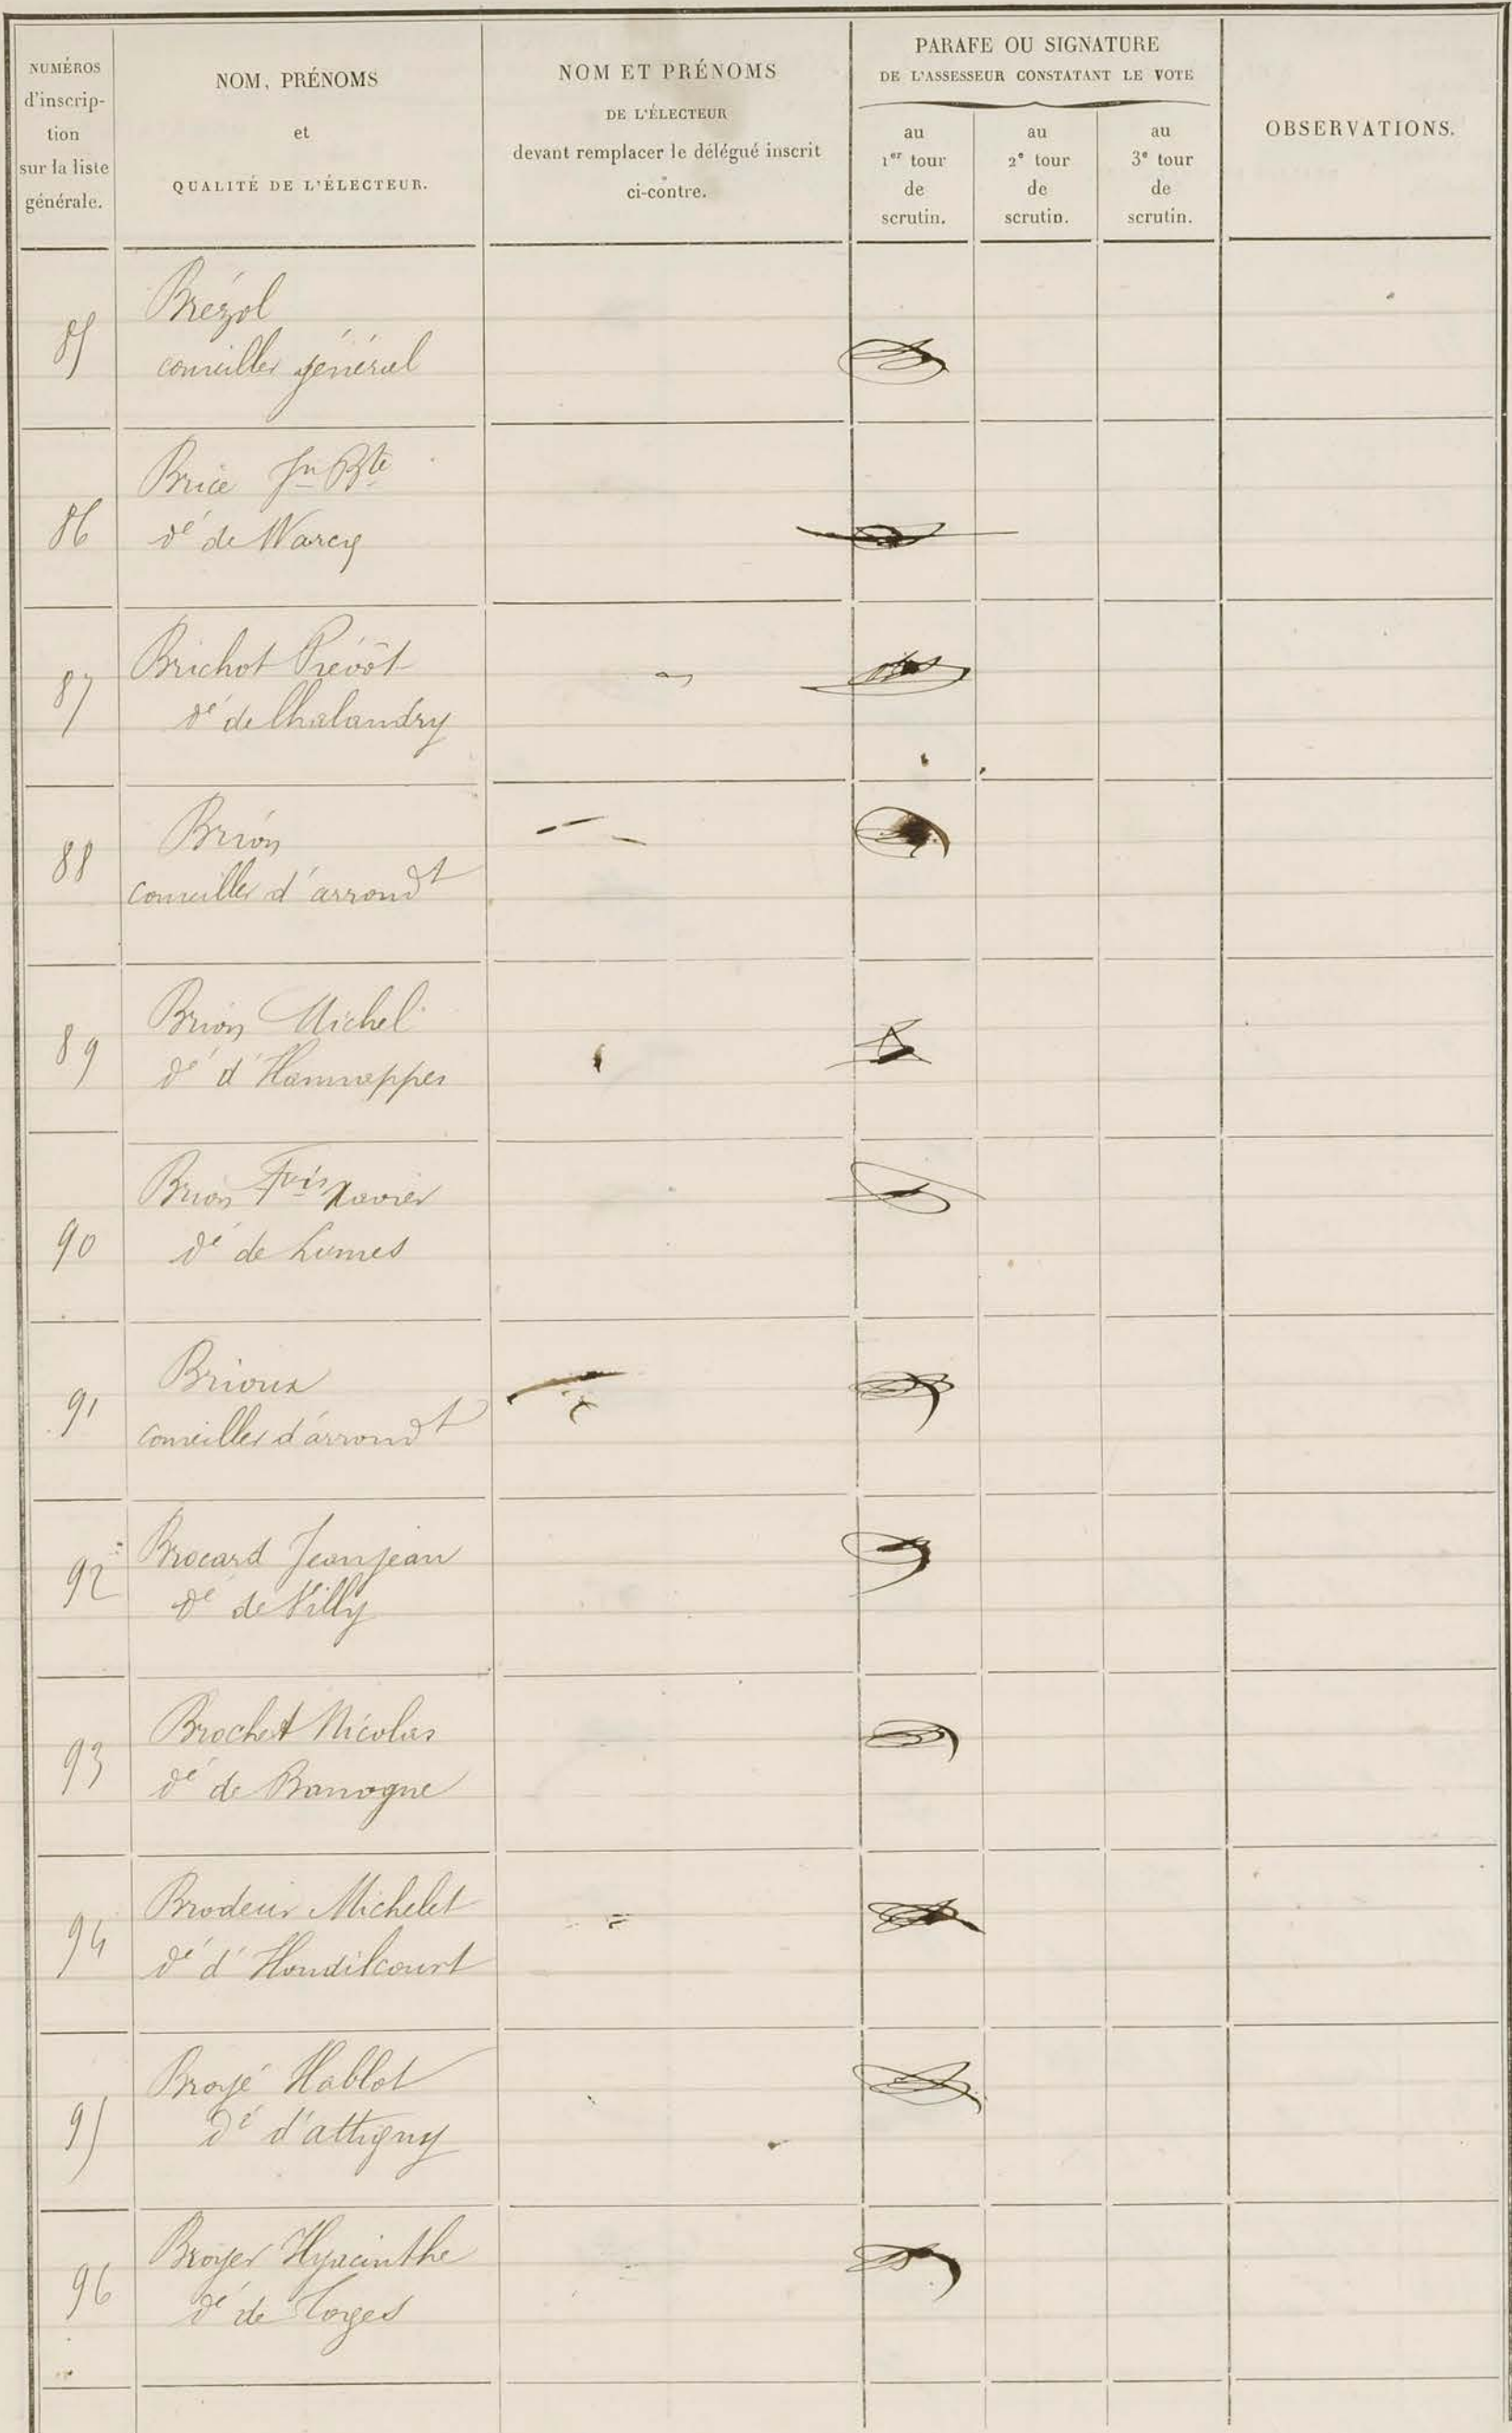 NUMÉROS
d'inscrip-
tion
sur la liste
générale.
NOM, PRÉNOMS
et
QUALITÉ DE L'ÉLECTEUR.
NOM ET PRÉNOMS
DE L'ÉLECTEUR
devant remplacer le délégué inscrit
ci-contre.
PARAFE OU SIGNATURE
DE L'ASSESSEUR CONSTATANT LE VOTE
au
1er tour
de
scrutin.
au
2e tour
de
scrutin.
au
3e tour
de
scrutin.
OBSERVATIONS.
85
Brézol
conseiller général
86
Brice Jn Bte
dé de Warcq
87
Brichot Prévôt
dé de Chalandry
88
Brion
conseiller d'arrondt
89
Brion Michel
dé d'Hannappes
90
Brion Fois Xavier
dé de Lumes
91
Brioux
conseiller d'arrondt
92
Brocard Jeanjean
dé de Villy
93
Brochet Nicolas
dé de Banogne
94
Brodeur Michelet
dé d'Houdilcourt
95
Broyé Hablot
dé d'attigny
96
Broyer Hyacinthe
dé de